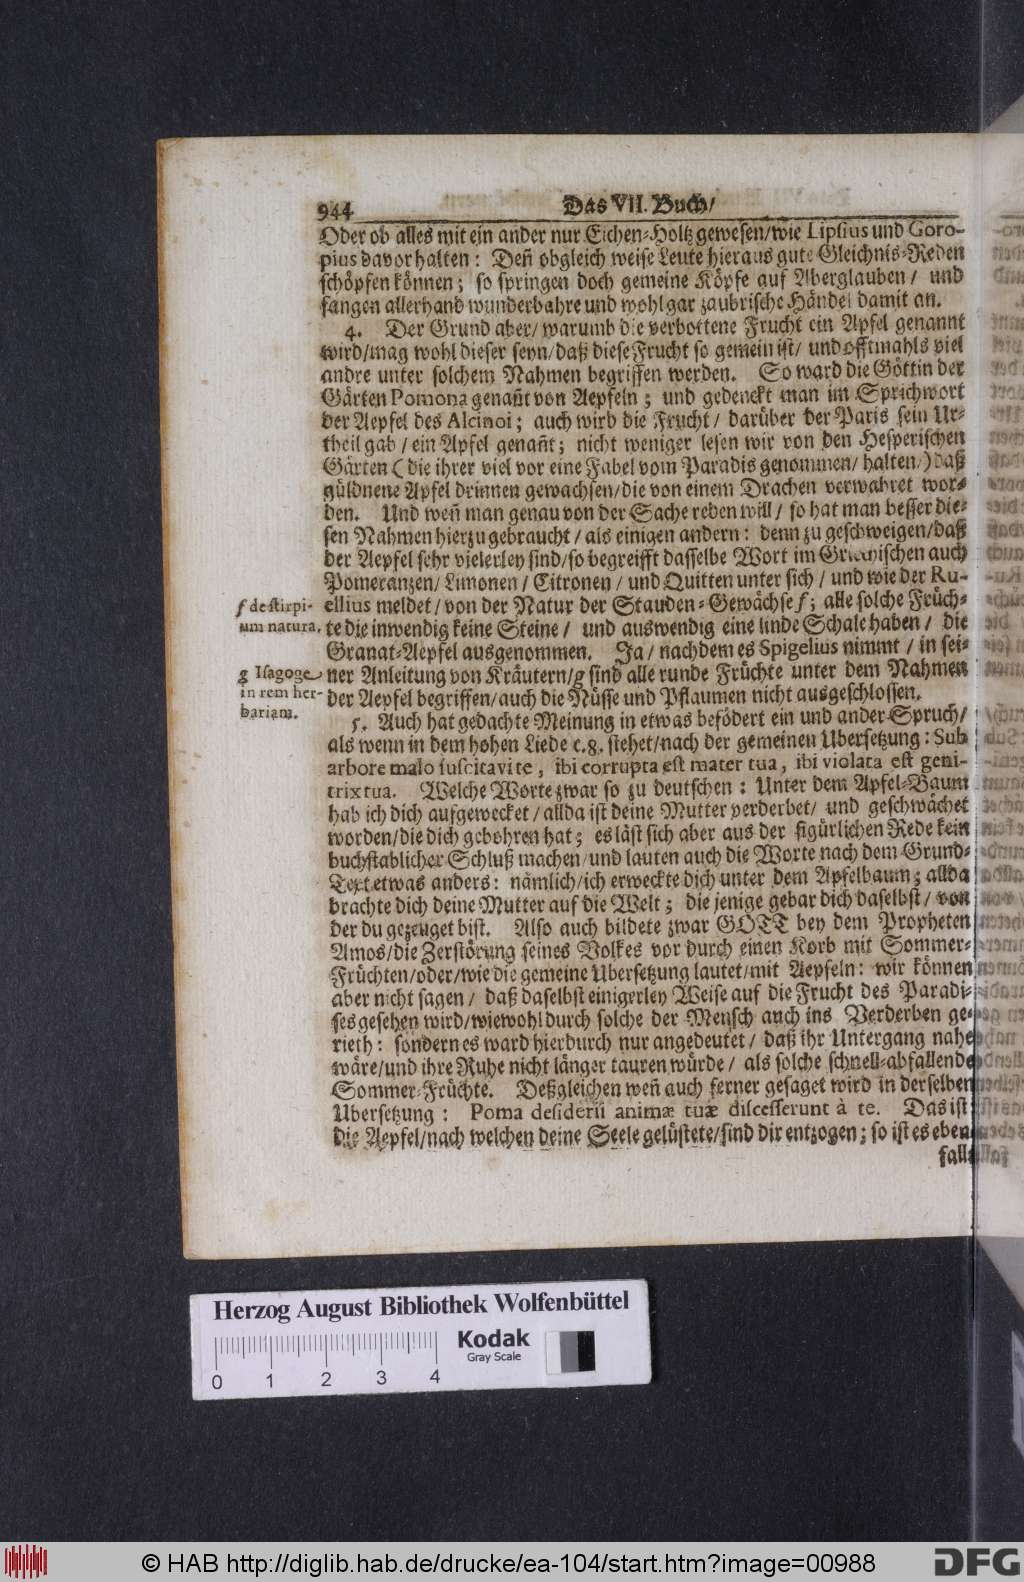 944 Das VII. Buch/
Oder ob alles mit ein ander nur Eichen-Holtz gewesen/wie Lipsius und Goro-
pius davor halten: Deñ obgleich weise Leute hieraus gute Gleichnis-Reden
schöpfen können; so springen doch gemeine Köpfe auf Aberglauben/ und
fangen allerhand wunderbahre und wohl gar zaubrische Händel damit an.
4. Der Grund aber/ warumb die verbottene Frucht ein Apfel genannt
wird/mag wohl dieser seyn/daß diese Frucht so gemein ist/ und offtmahls viel
andre unter solchem Nahmen begriffen werden. So ward die Göttin der
Gärten Pomona genañt von Aepfeln; und gedenckt man im Sprichwort
der Aepfel des Alcinoi; auch wird die Frucht/ darüber der Paris sein Ur-
theil gab/ ein Apfel genañt; nicht weniger lesen wir von den Hesperischen
Gärten (die ihrer viel vor eine Fabel vom Paradis genommen/ halten/) daß
güldnene Apfel drinnen gewachsen/die von einem Drachen verwahret wor-
den. Und weñ man genau von der Sache reden will/ so hat man besser die-
sen Nahmen hierzu gebraucht/ als einigen andern: denn zu geschweigen/daß
der Aepfel sehr vielerley sind/so begreifft dasselbe Wort im Griechischen auch
Pomeranzen/ Limonen/ Citronen/ und Quitten unter sich/ und wie der Ru-
ellius meldet/ von der Natur der Stauden-Gewächse f; alle solche Früch-
te die inwendig keine Steine/ und auswendig eine linde Schale haben/ die
Granat-Aepfel ausgenommen. Ja/ nachdem es Spigelius nimmt/ in sei-
ner Anleitung von Kräutern/g sind alle runde Früchte unter dem Nahmen
der Aepfel begriffen/auch die Nüsse und Pflaumen nicht ausgeschlossen.
f de stirpi-
um natura.
g Isagoge
in rem her-
bariam.
5. Auch hat gedachte Meinung in etwas befödert ein und ander Spruch/
als wenn in dem hohen Liede c.8. stehet/nach der gemeinen Ubersetzung: Sub
arbore malo suscitavi te, ibi corrupta est mater tua, ibi violata est geni-
trix tua. Welche Worte zwar so zu deutschen: Unter dem Apfel-Baum
hab ich dich aufgewecket/ allda ist deine Mutter verderbet/ und geschwächet
worden/die dich gebohren hat; es läst sich aber aus der figürlichen Rede kein
buchstablicher Schluß machen/und lauten auch die Worte nach dem Grund-
Text etwas anders: nämlich/ich erweckte dich unter dem Apfelbaum; allda
brachte dich deine Mutter auf die Welt; die jenige gebar dich daselbst/ von
der du gezeuget bist. Also auch bildete zwar GOTT bey dem Propheten
Amos/die Zerstörung seines Volkes vor durch einen Korb mit Sommer-
Früchten/oder/wie die gemeine Ubersetzung lautet/mit Aepfeln: wir können
aber nicht sagen/ daß daselbst einigerley Weise auf die Frucht des Paradi-
ses gesehen wird/wiewohl durch solche der Mensch auch ins Verderben ge-
rieth: sondern es ward hierdurch nur angedeutet/ daß ihr Untergang nahe
wäre/und ihre Ruhe nicht länger tauren würde/ als solche schnell-abfallende
Sommer-Früchte. Deßgleichen weñ auch ferner gesaget wird in derselben
Ubersetzung: Poma desiderii animæ tuæ discesserunt à te. Das ist:
die Aepfel/nach welchen deine Seele gelüstete/sind dir entzogen; so ist es eben
falls
Herzog August Bibliothek Wolfenbüttel
Kodak
Gray Scale
0 1 2 3 4
© HAB http://diglib.hab.de/drucke/ea-104/start.htm?image=00988
DFG